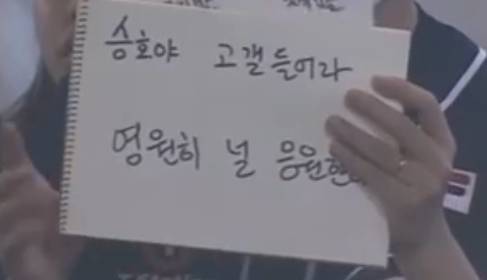 승호야 고갤들어라
영원히 널